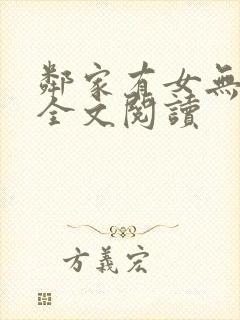 鄰家有女無
全文閱讀
方義宏